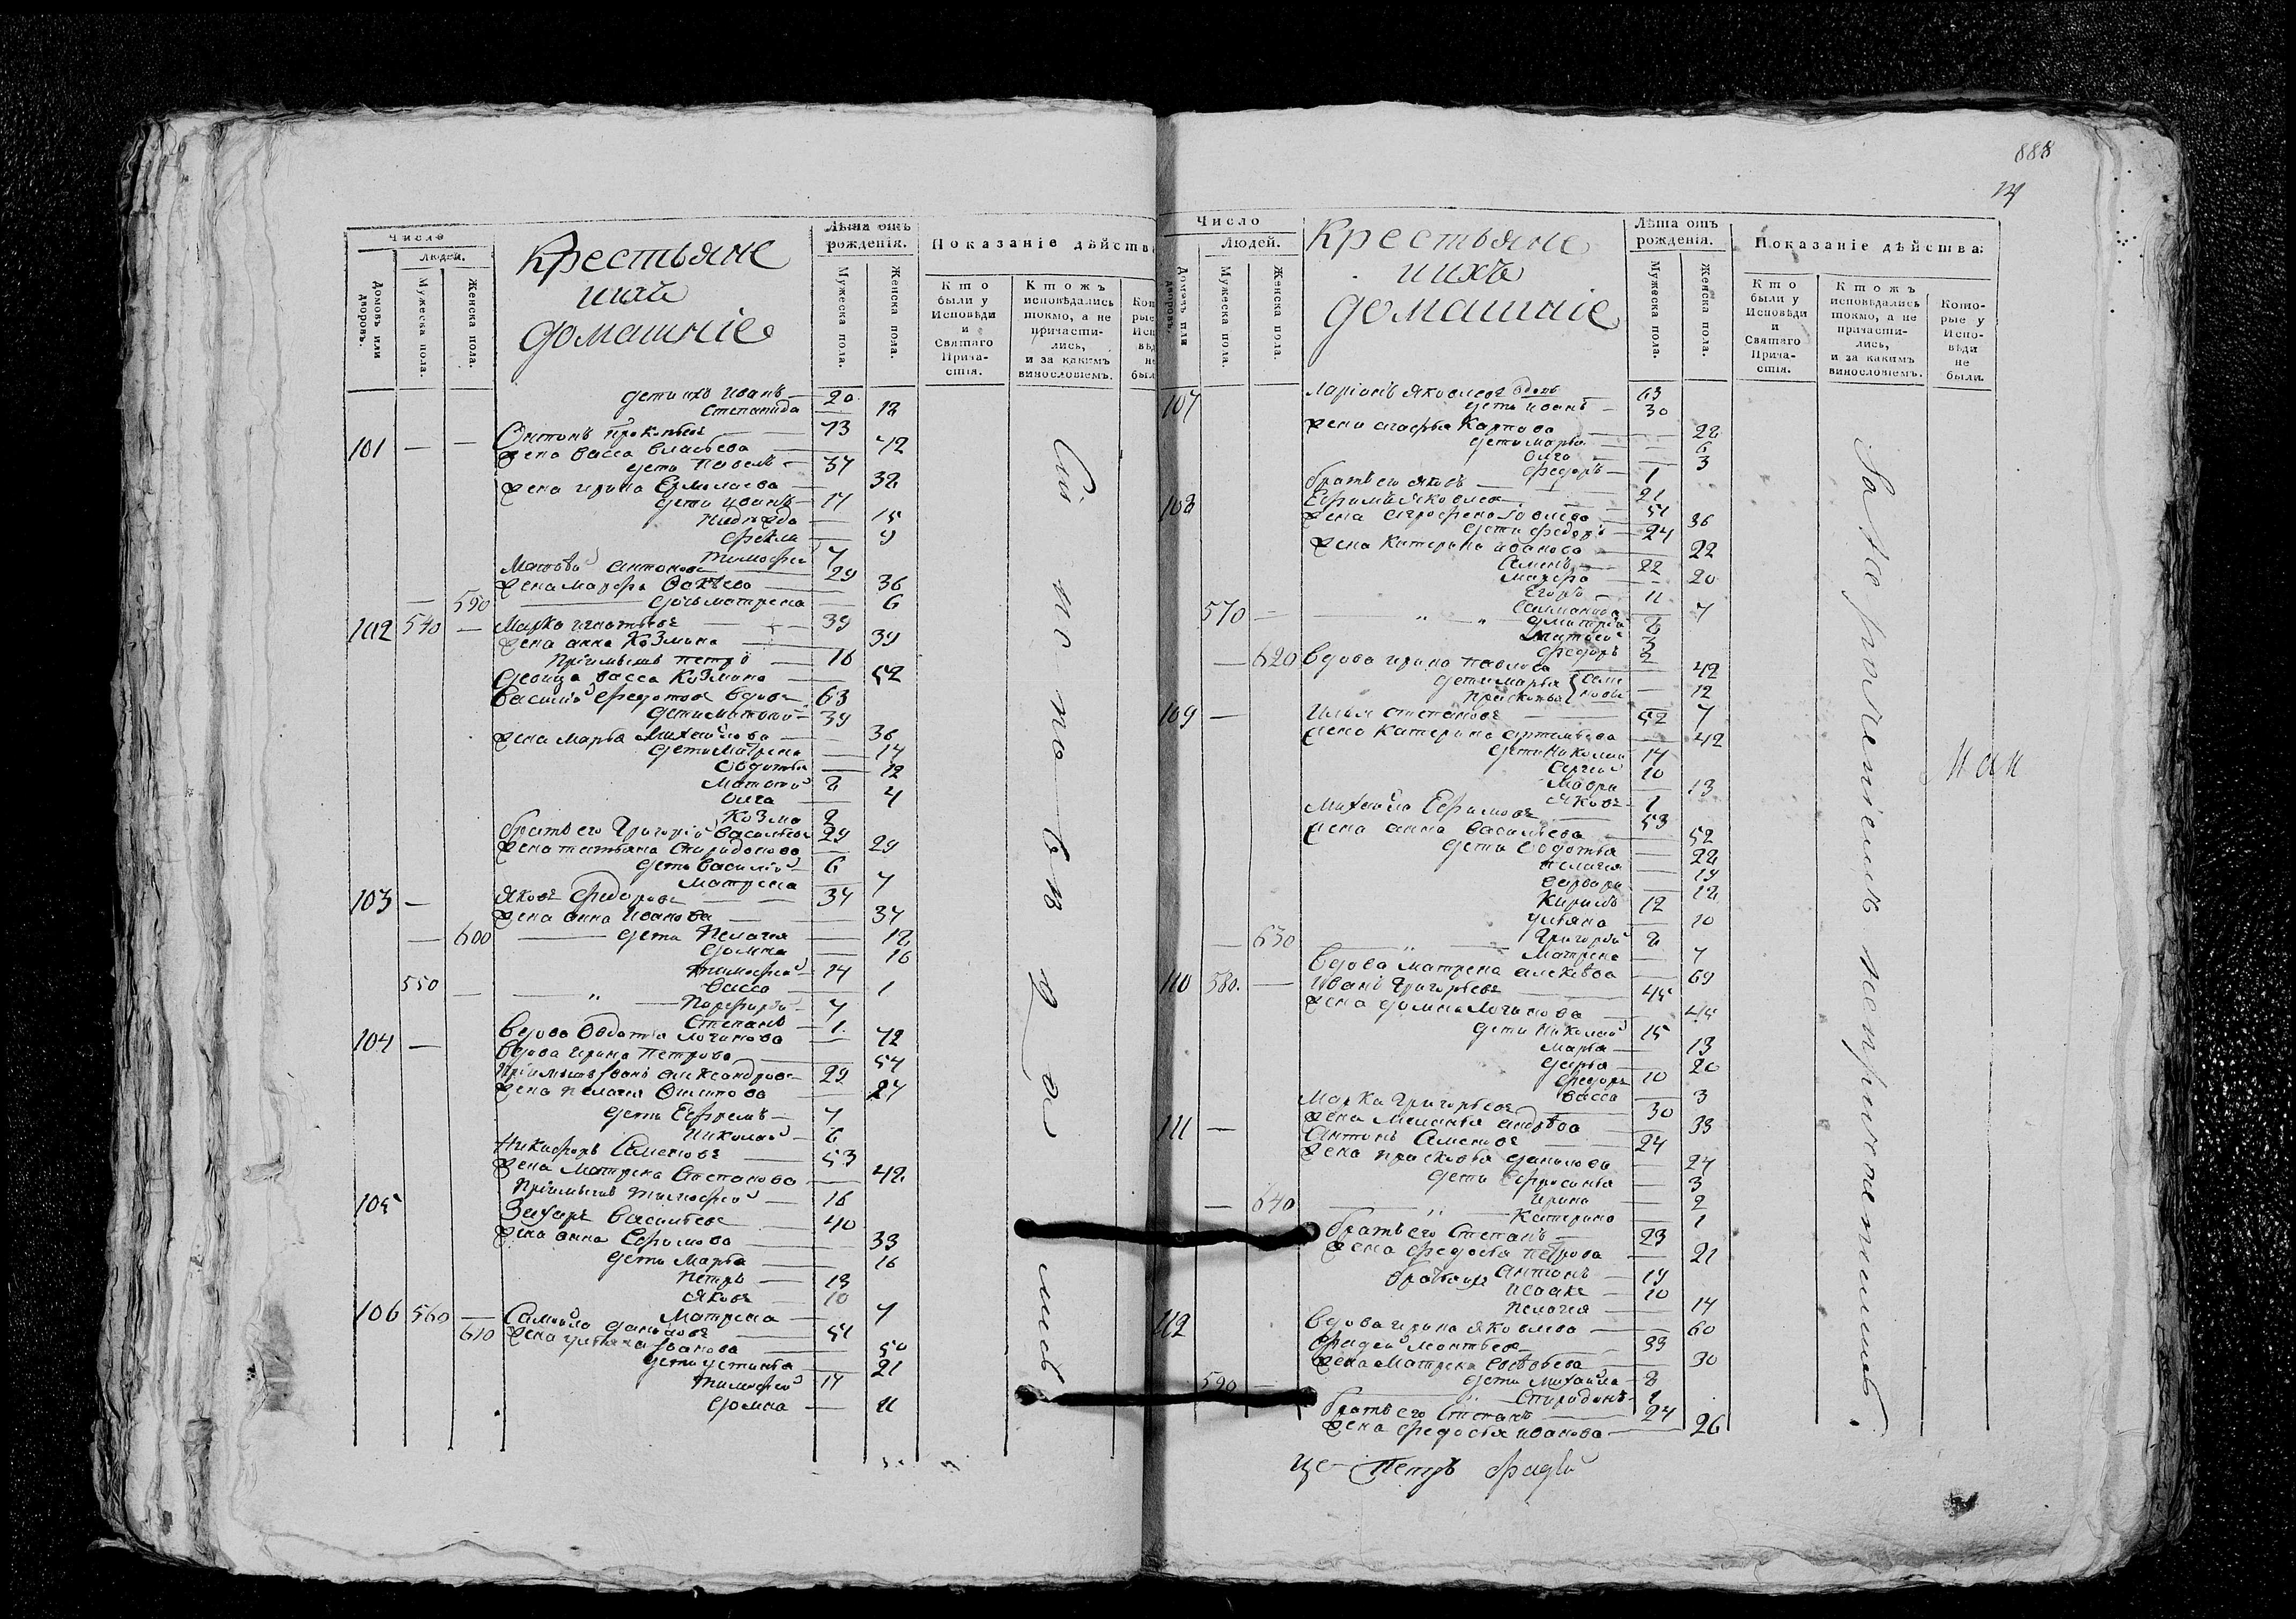 888
14
Число
людей.
Домовъ или дворовъ.
Мужеска пола.
Женска пола.
Крестьяне
ихъ
домашніе
Лѣта отъ рожденія.
Мужеска пола.
Женска пола.
Показаніе дѣйств
Кто были у Исповѣди и Святаго Прича-стія.
Ктожъ исповѣдались токмо, а не причасти-лись, и за какимъ винословіемъ.
дети ихъ Иванъ 20
Степанида 18
101 Антонъ Прокопьевъ 73
жена васса власьева 72
дети Павелъ 37
жена ирина Ермолаева 38
дети иванъ 17
15
Фекла 9
Тимофей 7
Матвѣй Антоновъ 29
жена марфа 36
590 дочь матрена 6
102 540 Марко игнатьевъ 39
жена анна Козмина 39
Пріимышъ петръ 16
девица васса Козмина 52
василій федотовъ вдовъ 63
39
жена марѳа Михайлова 36
дети Матрена 14
Овдотья 12
8
Олга 4
Козма 2
братъ его Григорій васильевъ 29
жена татьяна Спиридонова 29
дети василій 6
матрена 7
103 яковъ Федоровъ 37
жена анна Иванова 37
600 дети Пелагея 18
Домна 16
тимофей 14
550 васса 1
Порфирій 7
Степанъ 1
104 вдова Овдотья Логинова 72
вдова ирина Петрова 54
Пріимышъ Іванъ александровъ 29
жена пелагея 27
дети Ефремъ 7
Николай 6
Никифоръ Семеновъ 53
жена Матрена Степанова 42
пріимышъ тимофей 16
105 Захаръ васильевъ 40
жена анна Ефимова 33
дети Марѳа 16
петръ 13
яковъ 10
Матрена 7
106 560 Самойла даниловъ 51
610 жена ульяна Іванова 50
дети устинья 21
тимофей 17
домна 11
Число
Людей.
Домовъ или дворовъ.
Мужеска пола.
Женска пола.
Крестьяне
ихъ
домашніе
Лѣта отъ рожденія.
Мужеска пола.
Женска пола.
Показаніе дѣйства:
Кто были у Исповѣди и Святаго Прича-стія.
Ктожъ исповѣдались токмо, а не причасти-лись, и за какимъ винословіемъ.
Кото-рые у Испо-вѣди не были.
107 Ларіонъ яковлевъ вдовъ 63
дети иванъ 30
жена агафья Карпова 28
дети марѳа 6
олга 3
федоръ 1
братъ его яковъ 21
108 Ефимъ яковлевъ 51
жена 36
дети федоръ 24
жена Катерина иванова 22
Семенъ 22
марфа 20
Егоръ 11
7
570 дмитрій 8
матвей 3
федоръ 2
620 вдова ирина павлова 42
дети марѳа 12
прасковья 7
109 Илья степановъ 52
жена Катерина артемьева 42
дети Николай 14
Сергей 10
Мавра 13
яковъ 1
Михайла Ефимовъ 53
жена анна васильева 52
дети Овдотья 22
пелагея 19
варвара 18
Кирилъ 12
ульяна 10
630 Григорій 8
матрена 7
вдова матрена алексѣева 69
110 580. Иванъ Григорьевъ 45
жена домна Логинова 45
дети Николай 15
Марѳа 13
дарья 20
федоръ 10
васса 3
Марка Григорьевъ 30
жена меланья андрѣева 33
111 антонъ Семеновъ 24
жена прасковья данилова 24
дети ефросинья 3
ирина 2
640 Катерина 1
братъ его Степанъ 23
жена федосья петрова 21
антонъ 19
исаакъ 10
пелагея 14
112 вдова ирина яковлева 60
33
жена матрена 30
дети михайла 8
590 Спиридонъ 1
братъ его Степанъ 24
жена федосья иванова 26
Петръ